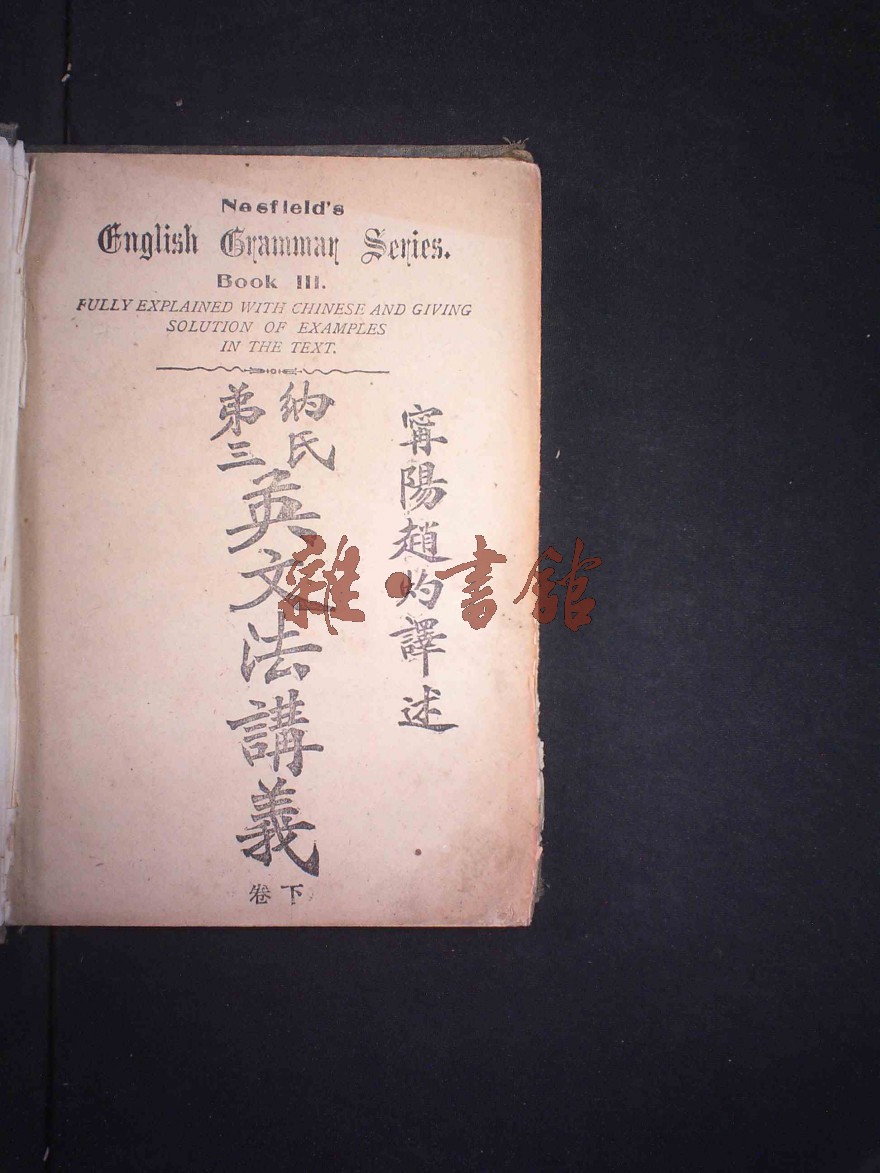 Nesfield's
English Grammar Series.
Book III.
FULLY EXPLAINED WITH CHINESE AND GIVING
SOLUTION OF EXAMPLES
IN THE TEXT.
甯陽趙灼譯述
納氏
弟三
英文法講義
下卷
雜·書館